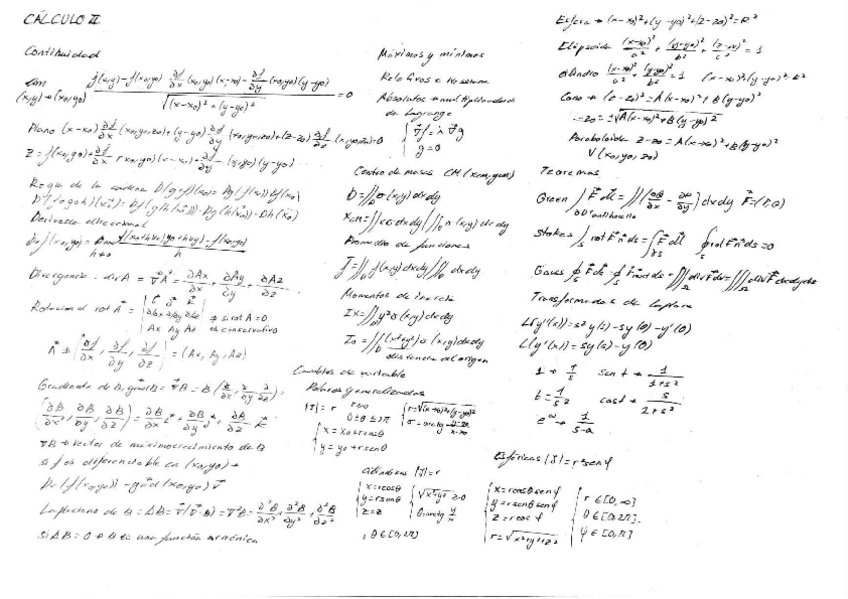 CÁLCULO II
Continuidad
lim (x,y)→(x₀,y₀) f(x,y)-f(x₀,y₀)-∂f/∂x(x₀,y₀)(x-x₀)-∂f/∂y(x₀,y₀)(y-y₀) / √((x-x₀)²+(y-y₀)²) = 0
Plano (x-x₀)∂f/∂x(x₀,y₀,z₀)+(y-y₀)∂f/∂y(x₀,y₀,z₀)+(z-z₀)∂f/∂z(x₀,y₀,z₀)=0
Z = f(x₀,y₀)+∂f/∂x(x₀,y₀)(x-x₀)+∂f/∂y(x₀,y₀)(y-y₀)
Regla de la cadena
Derivada direccional
Divergencia: div A = ∇A = ∂Ax/∂x + ∂Ay/∂y + ∂Az/∂z
Rotacional rot A =
→ si rot A = 0
es conservativo
Ax Ay Az
= (Ax, Ay, Az)
Gradiente de B, grad B = ∇B =
(∂B/∂x, ∂B/∂y, ∂B/∂z) = ∂B/∂x i + ∂B/∂y j + ∂B/∂z k
∇B → vector de máximo crecimiento de B
si f es diferenciable en (x₀,y₀) →
Laplaciano de B = ΔB = ∇(∇·B) = ∇²B = ∂²B/∂x² + ∂²B/∂y² + ∂²B/∂z²
si ΔB = 0 → B es una función armónica
Máximos y mínimos
Relativos → Hessiana
Absolutos → multiplicadores
de Lagrange
∇f = λ ∇g
g = 0
Centro de masas CM (xcm, ycm)
D = ∬ σ(x,y) dxdy
Promedio de funciones
f = ∬ f(x,y) dxdy / ∬ dxdy
Momentos de inercia
Ix = ∬ y² σ(x,y) dxdy
I₀ = ∬ (x²+y²) σ(x,y) dxdy
distancia al origen
Cambios de variable
Polares generalizadas
|J| = r r≥0
0≤θ≤2π
x = x₀+r cosθ
y = y₀+r senθ
r = √((x-x₀)²+(y-y₀)²)
Cilíndricas |J| = r
x = r cosθ
y = r senθ
z = z
√(x²+y²) ≥ 0
θ = arctg y/x
, θ ∈ [0,2π]
Esfera → (x-x₀)²+(y-y₀)²+(z-z₀)² = R²
Elipsoide (x-x₀)²/a² + (y-y₀)²/b² + (z-z₀)²/c² = 1
cilindro (x-x₀)²/a² + (y-y₀)²/b² = 1 (x-x₀)²+(y-y₀)² = R²
Cono → (z-z₀)² = A(x-x₀)² + B(y-y₀)²
z-z₀ = ±√(A(x-x₀)²+B(y-y₀)²)
Paraboloide z-z₀ = A(x-x₀)²+B(y-y₀)²
V(x₀,y₀,z₀)
Teoremas
Green ∫ F dl = ∬ (∂Q/∂x - ∂P/∂y) dxdy F=(P,Q)
Stokes ∫ rot F n ds = ∫ F dl ∮ rot F n ds = 0
Gauss ∮ F ds = ∮ F n ds = ∭ div F dv = ∭ div F dxdydz
Transformadas de Laplace
L(y''(x)) = s²y(s)-sy(0)-y'(0)
L(y'(x)) = sy(s)-y(0)
1 → 1/s sen t → 1/(1+s²)
t = 1/s² cos t →
→ 1/(s-a)
Esféricas |J| = r² senφ
x = r cosθ senφ
y = r senθ senφ
z = r cosφ
r = √(x²+y²+z²)
r ∈ [0,∞]
θ ∈ [0,2π]
φ ∈ [0,π]